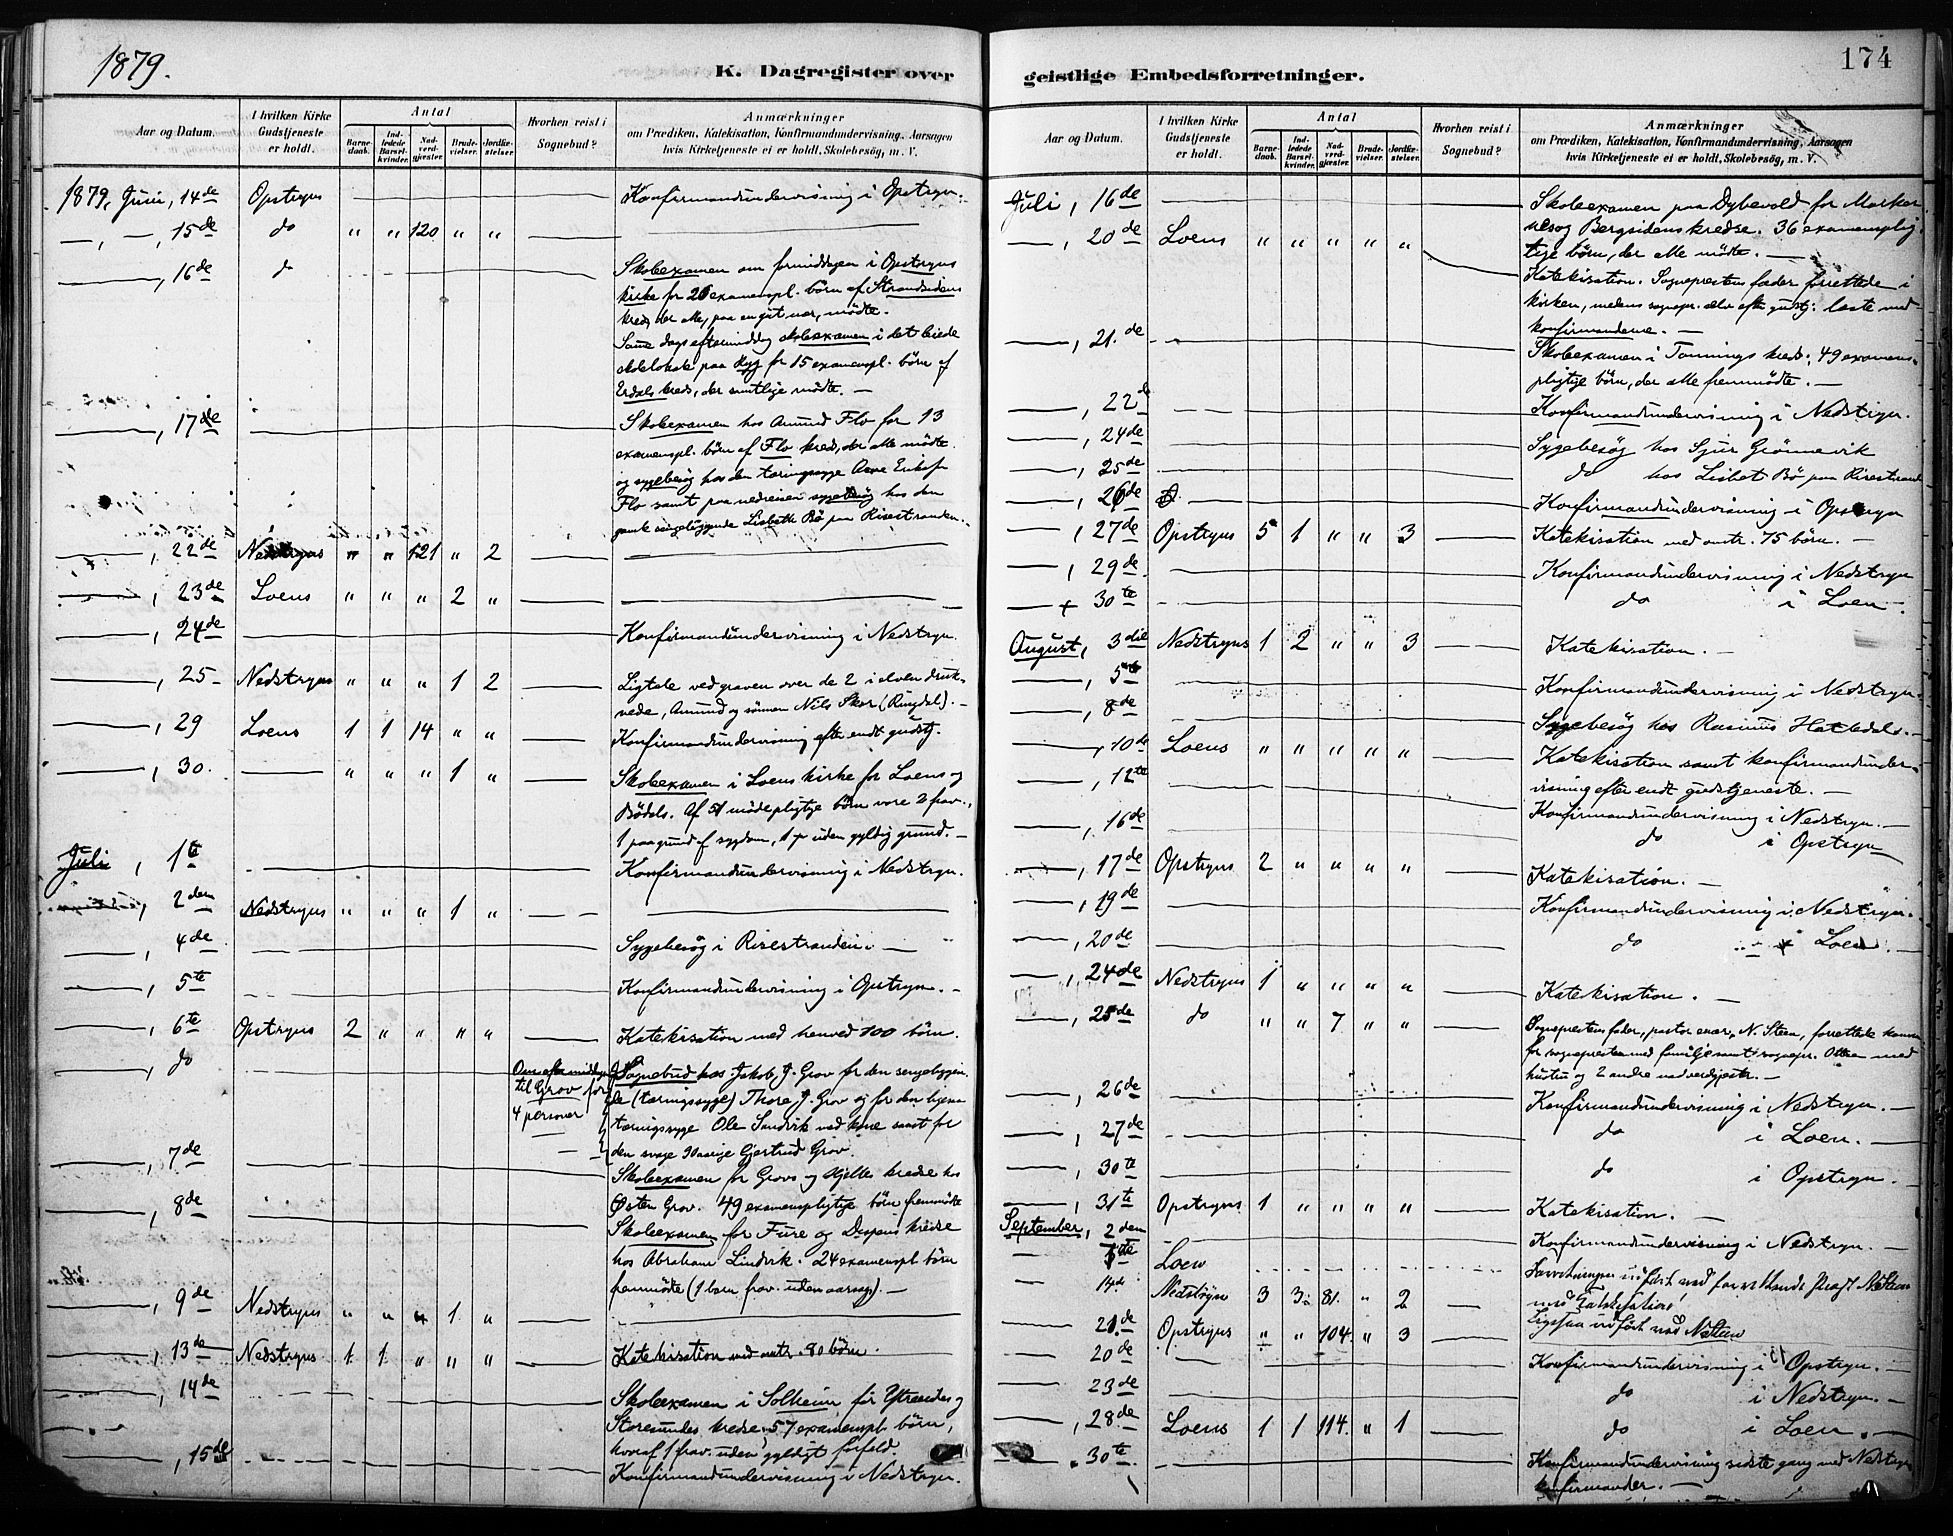 1879.
K. Dagregister over
Aar og Datum.
I hvilken Kirke Gudstjeneste er holdt.
Antal
Barnedaab.
Indledede Barselkvinder.
Nadverdgjester.
Brudevielser.
Jordfæstelser.
Hvorhen reist i Sognebud?
Anmærkninger
om Prædiken, Katekisation, Konfirmandundervisning, Aarsagen
hvis Kirketjeneste ei er holdt, Skolebesøg, m. V.
1879, Juni, 14de Opstryns Konfirmandundervisning i Opstryn.
—, —, 15de do " " 120 " "
—, 16de do Skoleexamen om formiddagen i Opstryns
kirke for 26 examenspl. børn af Strandsidens
kreds, der alle, paa en git nær, mødte.
Same dags eftermiddag skoleexamen i det leiede
skolelokale paa Ryg for 15 examenspl. børn af
Erdals kreds, der samtlige mødte. —
—, 17de Skoleexamen hos Amund Flo for 13
examenspl. børn af Flo kreds, der alle mødte
og sygebesøg hos den tæringssyge Erikse
Flo samt paa nedreisen sygebesøg hos den
gamle sengeliggende Lisbeth Bø paa Risestranden.
—, 22de Nedstryns " " 121 " 2
—, 23de Loens " " " 2 "
—, 24de Konfirmandundervisning i Nedstryn.
—, 25 Nedstryns " " " 1 2 Ligtale ved graven over de 2 i elven druk-
nede, Amund og sønnen Nils Skor (Ringdal). —
—, 29 Loens 1 1 14 " " Konfirmandundervisning efter endt gudstj.
—, 30. — " " " 1 " Skoleexamen i Loens kirke for Loens og
Bødals. Af 51 mødepligtige børn vare 2 frav.,
1 paa grund af sygdom, 1 uden gyldig grund. —
Juli, 1te Konfirmandundervisning i Nedstryn.
—, 2den Nedstryns " " " 1 "
—, 4de Sygebesøg i Risestranden. —
—, 5te Konfirmandundervisning i Opstryn. —
—, 6te Opstryns 2 " " " " Katekisation med henved 100 børn.
—, do Om eftermiddagen
til Grov for
4 personer
Sognebud hos Jakob J. Grov for den sengeliggen-
de (tæringssyge) Thore J. Grov og for den ligesaa
tæringssyge Ole Sandvik med kone samt for
den svage 90aarige Gjertrud Grov.
—, 7de Skoleexamen for Grovs og Hjelles kredse hos
Østen Grov. 49 examenspligtige børn fremmødte
—, 8de Skoleexamen for Fure og Dispens kredse
hos Abraham Lindvik. 24 examenspl. børn
fremmødte (1 barn frav. uden aarsag). —
—, 9de Nedstryns " " " 1 "
—, 13de Nedstryns 1 1 " " " Katekisation med omtr. 80 børn.
—, 14de Skoleexamen i Solheim for Ytreeides og
Storesundes kredse. 57 examenspl. børn,
hvoraf 1 frav. uden gyldigt forfald.
—, 15de Konfirmandundervisning i Nedstryn.
geistlige Embedsforretninger.
174
Aar og Datum.
I hvilken Kirke Gudstjeneste er holdt.
Antal
Barnedaab.
Indledede Barselkvinder.
Nadverdgjester.
Brudevielser.
Jordfæstelser.
Hvorhen reist i Sognebud?
Anmærkninger
om Prædiken, Katekisation, Konfirmandundervisning, Aarsagen
hvis Kirketjeneste ei er holdt, Skolebesøg, m. V.
Juli, 16de Skoleexamen paa Dybevold for Marke-
nes og Bergsidens kredse. 36 examensplig-
tige børn, der alle mødte. —
—, 20de Loens " " " " " Katekisation. Sogneprestens fader forrettede i
kirken, medens sognepr. selv efte gudstj. læste med
konfirmandene. —
—, 21.de Skoleexamen i Tonnings kreds; 49 examens-
pligtige børn, der alle fremmødte. —
—, 22de Konfirmandundervisning i Nedstryn.
—, 24de Sygebesøg hos Sjur Grønnevik
—, 25de do hos Lisbet Bø paa Risestrand
—, 26de Konfirmandundervisning i Opstryn
—, 27de Opstryns 5 1 " " 3 Katekisation med omtr. 75 børn. —
—, 29de Konfirmandundervisning i Nedstryn
— 30te do i Loen.
August, 3die Nedstryns 1 2 " " 3 Katekisation. —
—, 5te Konfirmandundervisning i Nedstryn.
—, 8de Sygebesøg hos Rasmus
—, 10de Loens " " " " " Katekisation samt konfirmandunder-
visning efter endt gudstjeneste. —
—, 12te Konfirmandundervisning i Nedstryn. —
—, 16de do i Opstryn
—, 17de Opstryns 2 " " " " Katekisation. —
—, 19de Konfirmandundervisning i Nedstryn.
—, 20de do i Loen. —
—, 24de Nedstryns 1 " " " " Katekisation. —
—, 25de do " " 7 " " Sogneprestens fader, pastor emer. N. Steen, forrettede
for sognepresten med familje samt sognepr. med
hustru og 2 andre nadverdgjestr. —
—, 26de Konfirmandundervisning i Nedstryn. —
—, 27de do i Loen. —
—, 30te do i Opstryn. —
—, 31te Opstryns 1 " " " " Katekisation. —
September, 2den Konfirmandundervisning i Nedstryn. —
— Loen
— 14de Nedstryn 3 3 81. " 2 med Katekisation
— 21.de Opstryns " " 104. " 3
— 20de Konfirmandundervisning i Opstryn. —
— 23de do i Nedstryn. —
—, 28.de Loens 1 1 114. " 1 do i Loen. —
—, 30te Konfirmandundervisning sidste gang med Nedstryns
konfirmander. —